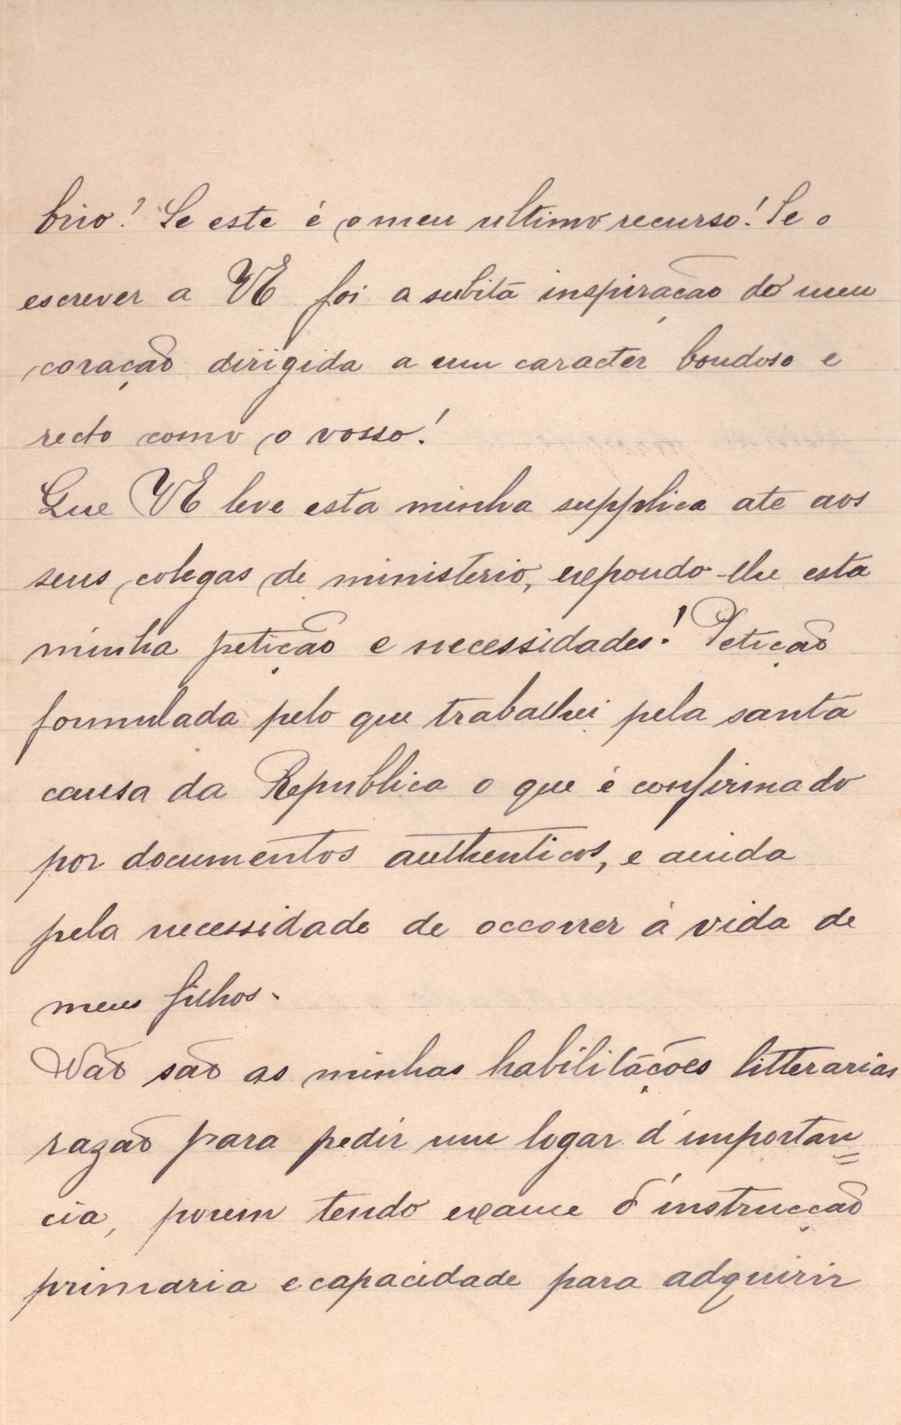 brio! Se este é o meu ultimo recurso! Se o
escrever a VE foi a subita inspiração do meu
coração dirigida a um caracter bondoso e
recto como o vosso!
Que VE leve esta minha supplica até aos
seus colegas de ministerio, expondo-lhe esta
minha petição e necessidades! Petição
formulada pelo que trabalhei pela santa
causa da Republica o que é confirmado
por documentos authenticos, e ainda
pela necessidade de occorrer á vida de
meus filhos.
Não são as minhas habilitações litterarias
razão para pedir um logar d'importan=
cia, porem tendo exame d'instrucção
primaria e capacidade para adquirir